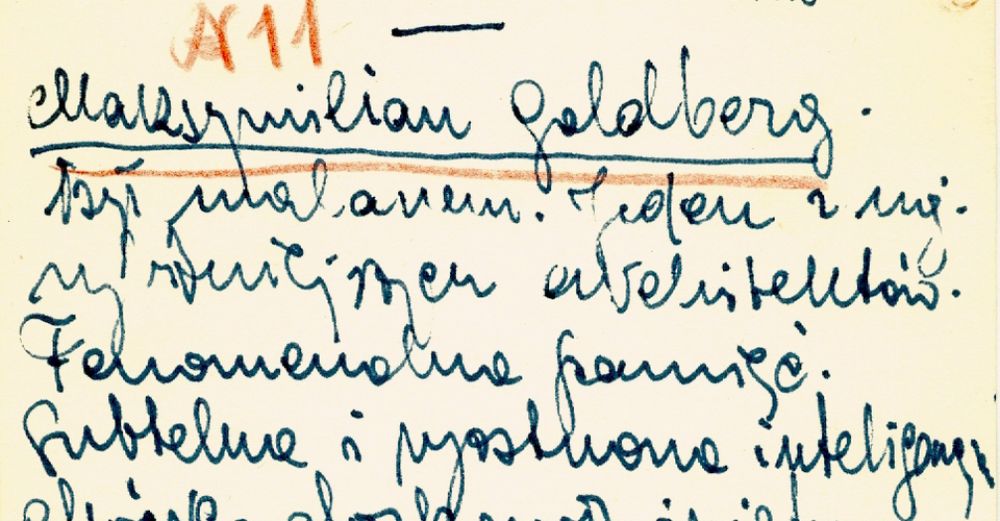 N 11
Maksymilian Goldberg.
Był malarzem. Jeden z naj-
wybitniejszych architektów.
Fenomenalna pamięć.
Subtelna i wyostrzona inteligencja